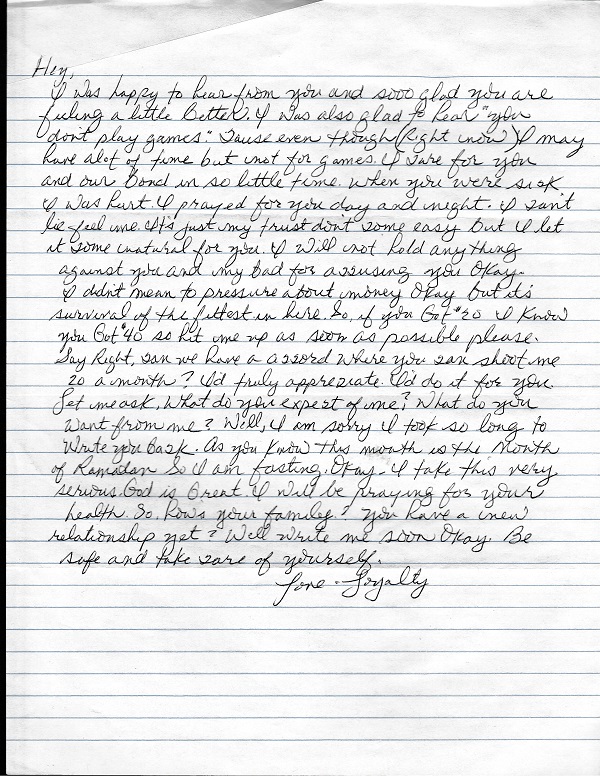 Hey,
I was happy to hear from you and sooo glad you are
feeling a little better. I was also glad to hear "you
don't play games." Cause even though (Right now) I may
have alot of time but not for games. I care for you
and our Bond in so little time. When you were sick
I was hurt I prayed for you day and night. I can't
lie feel me. It's just my trust don't come easy but I let
it come natural for you. I will not hold any thing
against you and my bad for accusing you Okay.
I didn't mean to pressure about money Okay but it's
survival of the fittest in here. So, if you Got $20 I Know
you Got $40 so hit me up as soon as possible please.
Say Right, can we have a accord where you can shoot me
20 a month? I'd truly appreciate. I'd do it for you.
Let me ask, What do you expect of me? What do you
want from me? Well, I am sorry I took so long to
write you back. As you know this month is the Month
of Ramadan so I am fasting. Okay. I take this very
serious. God is Great. I will be praying for your
health. So, How's your family? You have a new
relationship yet? Well write me soon Okay. Be
safe and take care of yourself.
Love - Loyalty